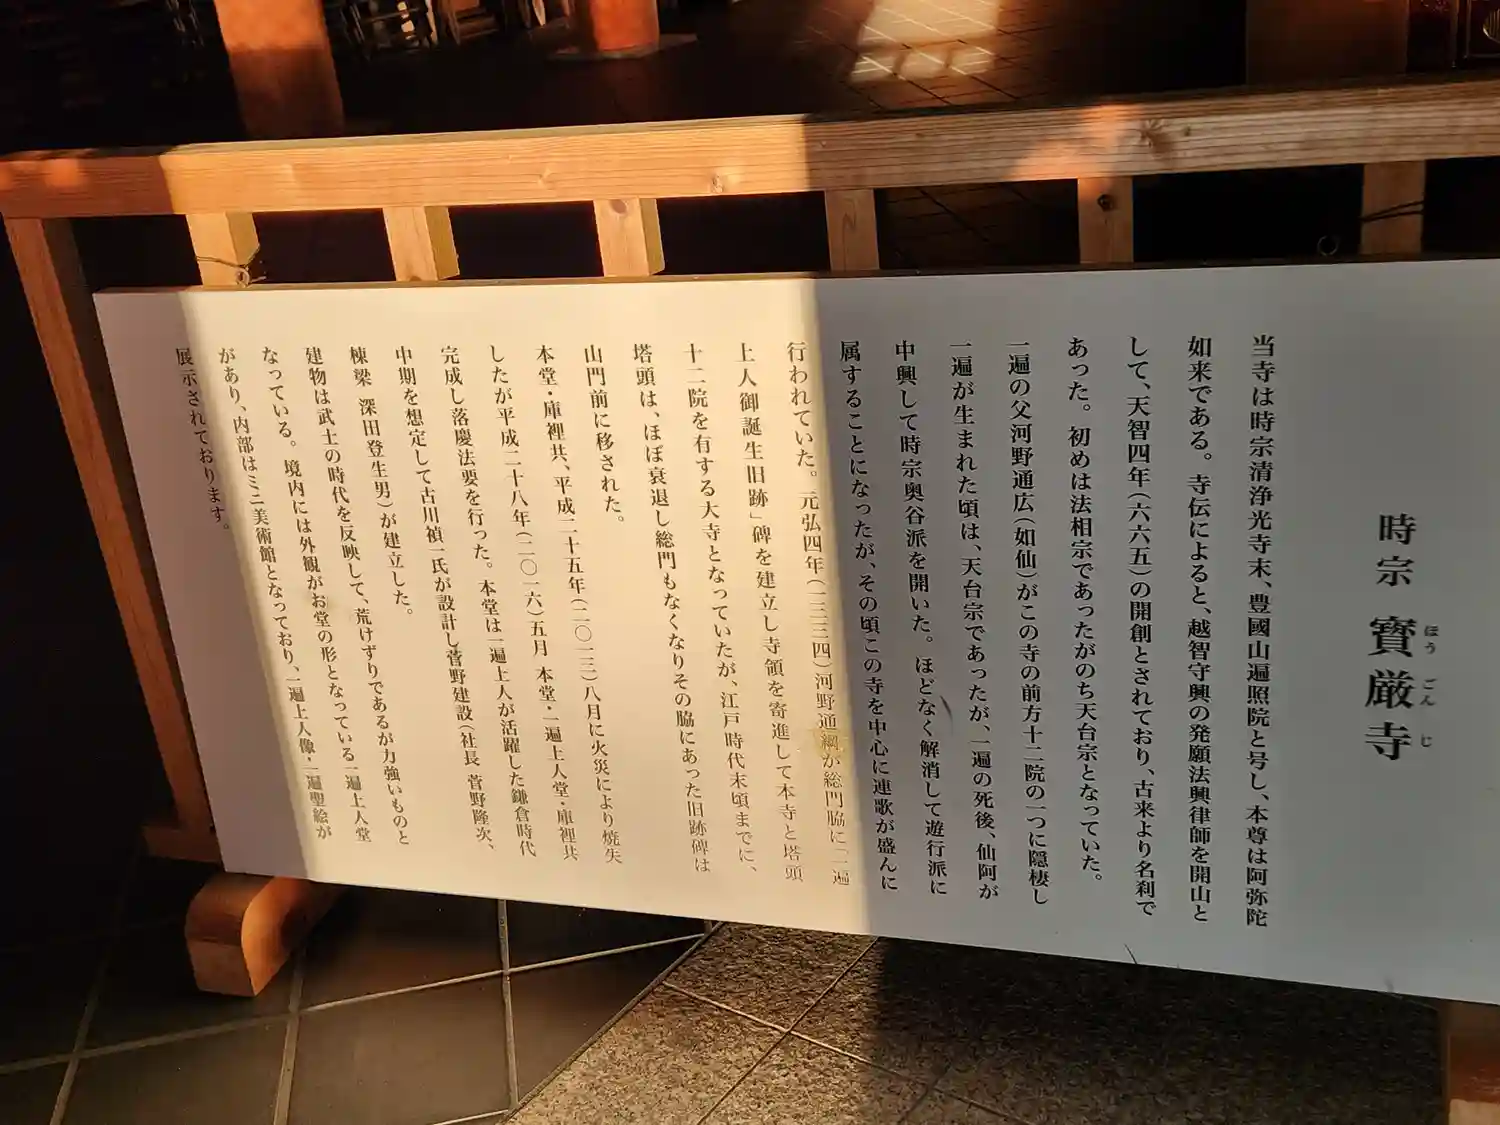 時宗 寶厳寺
ほう ごん じ
当寺は時宗清浄光寺末、豊國山遍照院と号し、本尊は阿弥陀
如来である。寺伝によると、越智守興の発願法興律師を開山と
して、天智四年(六六五)の開創とされており、古来より名刹で
あった。初めは法相宗であったがのち天台宗となっていた。
一遍の父河野通広(如仙)がこの寺の前方十二院の一つに隠棲し
一遍が生まれた頃は、天台宗であったが、一遍の死後、仙阿が
中興して時宗奥谷派を開いた。ほどなく解消して遊行派に
属することになったが、その頃この寺を中心に連歌が盛んに
行われていた。元弘四年(一三三四)河野通綱が総門脇に「一遍
上人御誕生旧跡」碑を建立し寺領を寄進して本寺と塔頭
十二院を有する大寺となっていたが、江戸時代末頃までに、
塔頭は、ほぼ衰退し総門もなくなりその脇にあった旧跡碑は
山門前に移された。
本堂・庫裡共、平成二十五年(二〇一三)八月に火災により焼失
したが平成二十八年(二〇一六)五月 本堂・一遍上人堂・庫裡共
完成し落慶法要を行った。本堂は一遍上人が活躍した鎌倉時代
中期を想定して古川禎一氏が設計し菅野建設(社長 菅野隆次、
棟梁 深田登生男)が建立した。
建物は武士の時代を反映して、荒けずりであるが力強いものと
なっている。境内には外観がお堂の形となっている一遍上人堂
があり、内部はミニ美術館となっており、一遍上人像・一遍聖絵が
展示されております。